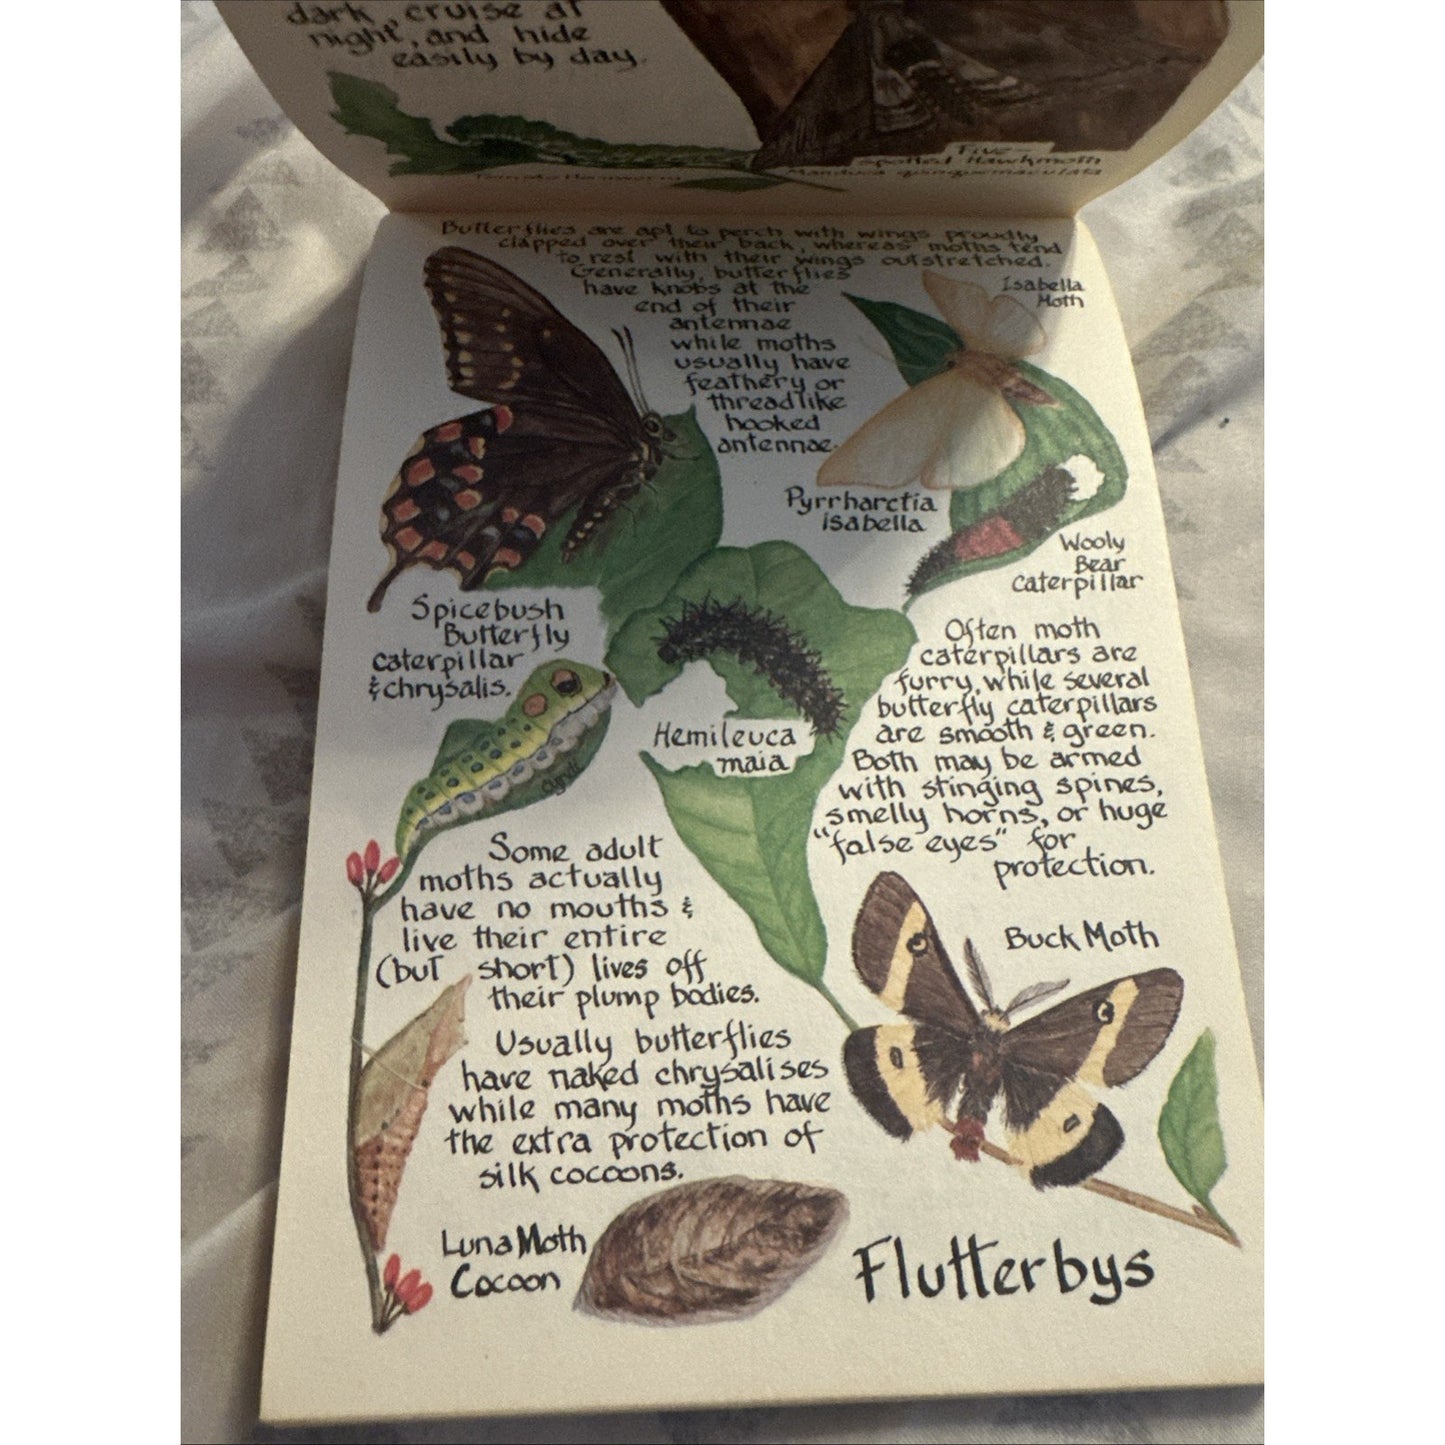 dark, cruise at
night, and hide
easily by day.
Tomato Hornworm
Five-
spotted Hawkmoth
Manduca quinquemaculata
Butterflies are apt to perch with wings proudly
clapped over their back, whereas moths tend
to rest with their wings outstretched.
Generally, butterflies
have knobs at the
end of their
antennae
while moths
usually have
feathery or
threadlike
hooked
antennae.
Isabella
Moth
Pyrrharctia
isabella
Wooly
Bear
Caterpillar
Spicebush
Butterfly
caterpillar
& chrysalis.
Hemileuca
maia
Often moth
caterpillars are
furry, while several
butterfly caterpillars
are smooth & green.
Both may be armed
with stinging spines,
smelly horns, or huge
"false eyes" for
protection.
Some adult
moths actually
have no mouths &
live their entire
(but short) lives off
their plump bodies.
Buck Moth
Usually butterflies
have naked chrysalises
while many moths have
the extra protection of
silk cocoons.
Luna Moth
Cocoon
Flutterbys